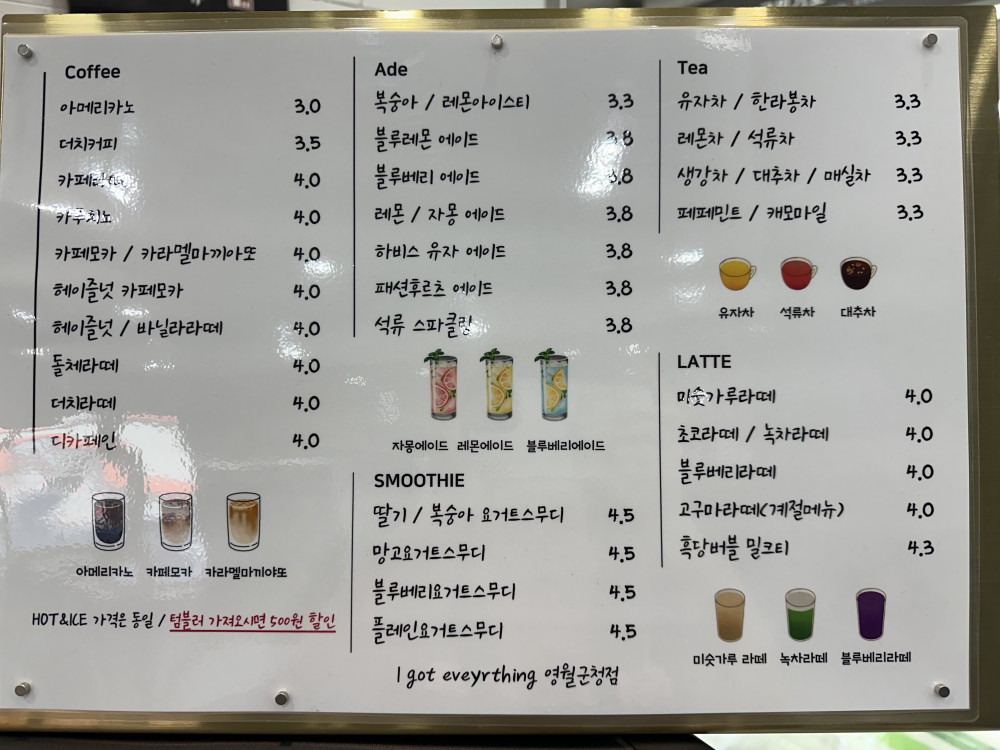 Coffee
아메리카노 3.0
더치커피 3.5
카페라떼 4.0
카푸치노 4.0
카페모카 / 카라멜마끼아또 4.0
헤이즐넛 카페모카 4.0
헤이즐넛 / 바닐라라떼 4.0
돌체라떼 4.0
더치라떼 4.0
디카페인 4.0
아메리카노 카페모카 카라멜마끼야또
HOT&ICE 가격은 동일 / 텀블러 가져오시면 500원 할인
Ade
복숭아 / 레몬아이스티 3.3
블루레몬 에이드 3.8
블루베리 에이드 3.8
레몬 / 자몽 에이드 3.8
하비스 유자 에이드 3.8
패션후르츠 에이드 3.8
석류 스파클링 3.8
자몽에이드 레몬에이드 블루베리에이드
SMOOTHIE
딸기 / 복숭아 요거트스무디 4.5
망고요거트스무디 4.5
블루베리요거트스무디 4.5
플레인요거트스무디 4.5
I got eveyrthing 영월군청점
Tea
유자차 / 한라봉차 3.3
레몬차 / 석류차 3.3
생강차 / 대추차 / 매실차 3.3
페페민트 / 캐모마일 3.3
유자차 석류차 대추차
LATTE
미숫가루라떼 4.0
초코라떼 / 녹차라떼 4.0
블루베리라떼 4.0
고구마라떼(계절메뉴) 4.0
흑당버블 밀크티 4.3
미숫가루 라떼 녹차라떼 블루베리라떼